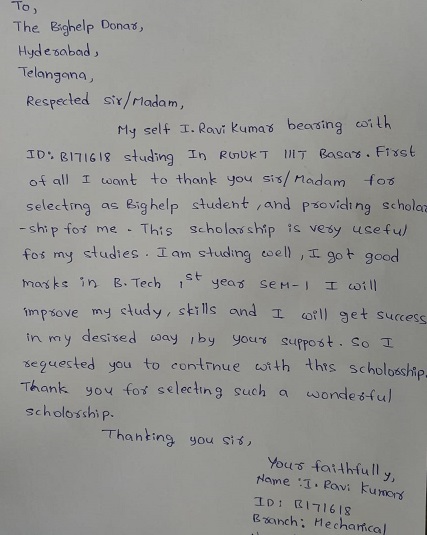 To,
The Bighelp Donar,
Hyderabad,
Telangana,
Respected sir/Madam,
My self I. Ravi Kumar bearing with
ID: B171618 studing In RGUKT IIIT Basar. First
of all I want to thank you sir/Madam for
selecting as Bighelp student, and providing scholar
-ship for me. This scholarship is very useful
for my studies. I am studing well, I got good
marks in B.Tech 1st year SEM-1 I will
improve my study, skills and I will get success
in my desired way, by your support. So I
requested you to continue with this scholorship.
Thank you for selecting such a wonderful
scholorship.
Thanking you sir,
Your faithfully,
Name: I. Ravi Kumar
ID: B171618
Branch: Mechanical